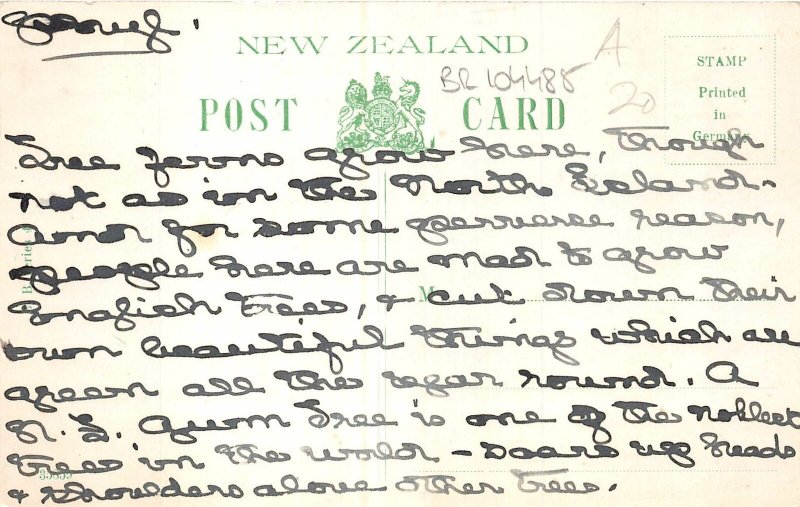 NEW ZEALAND
POST CARD
BR 104485
A
20
STAMP
Printed
in
Germany
Tree ferns grow here, though
not as in the North Island.
And for some perverse reason,
people here are mad to grow
English trees, & cut down their
own beautiful things which are
green all the year round. A
N.Z. Gum Tree is one of the noblest
trees in the world – soars up heads
& shoulders above other trees.
M